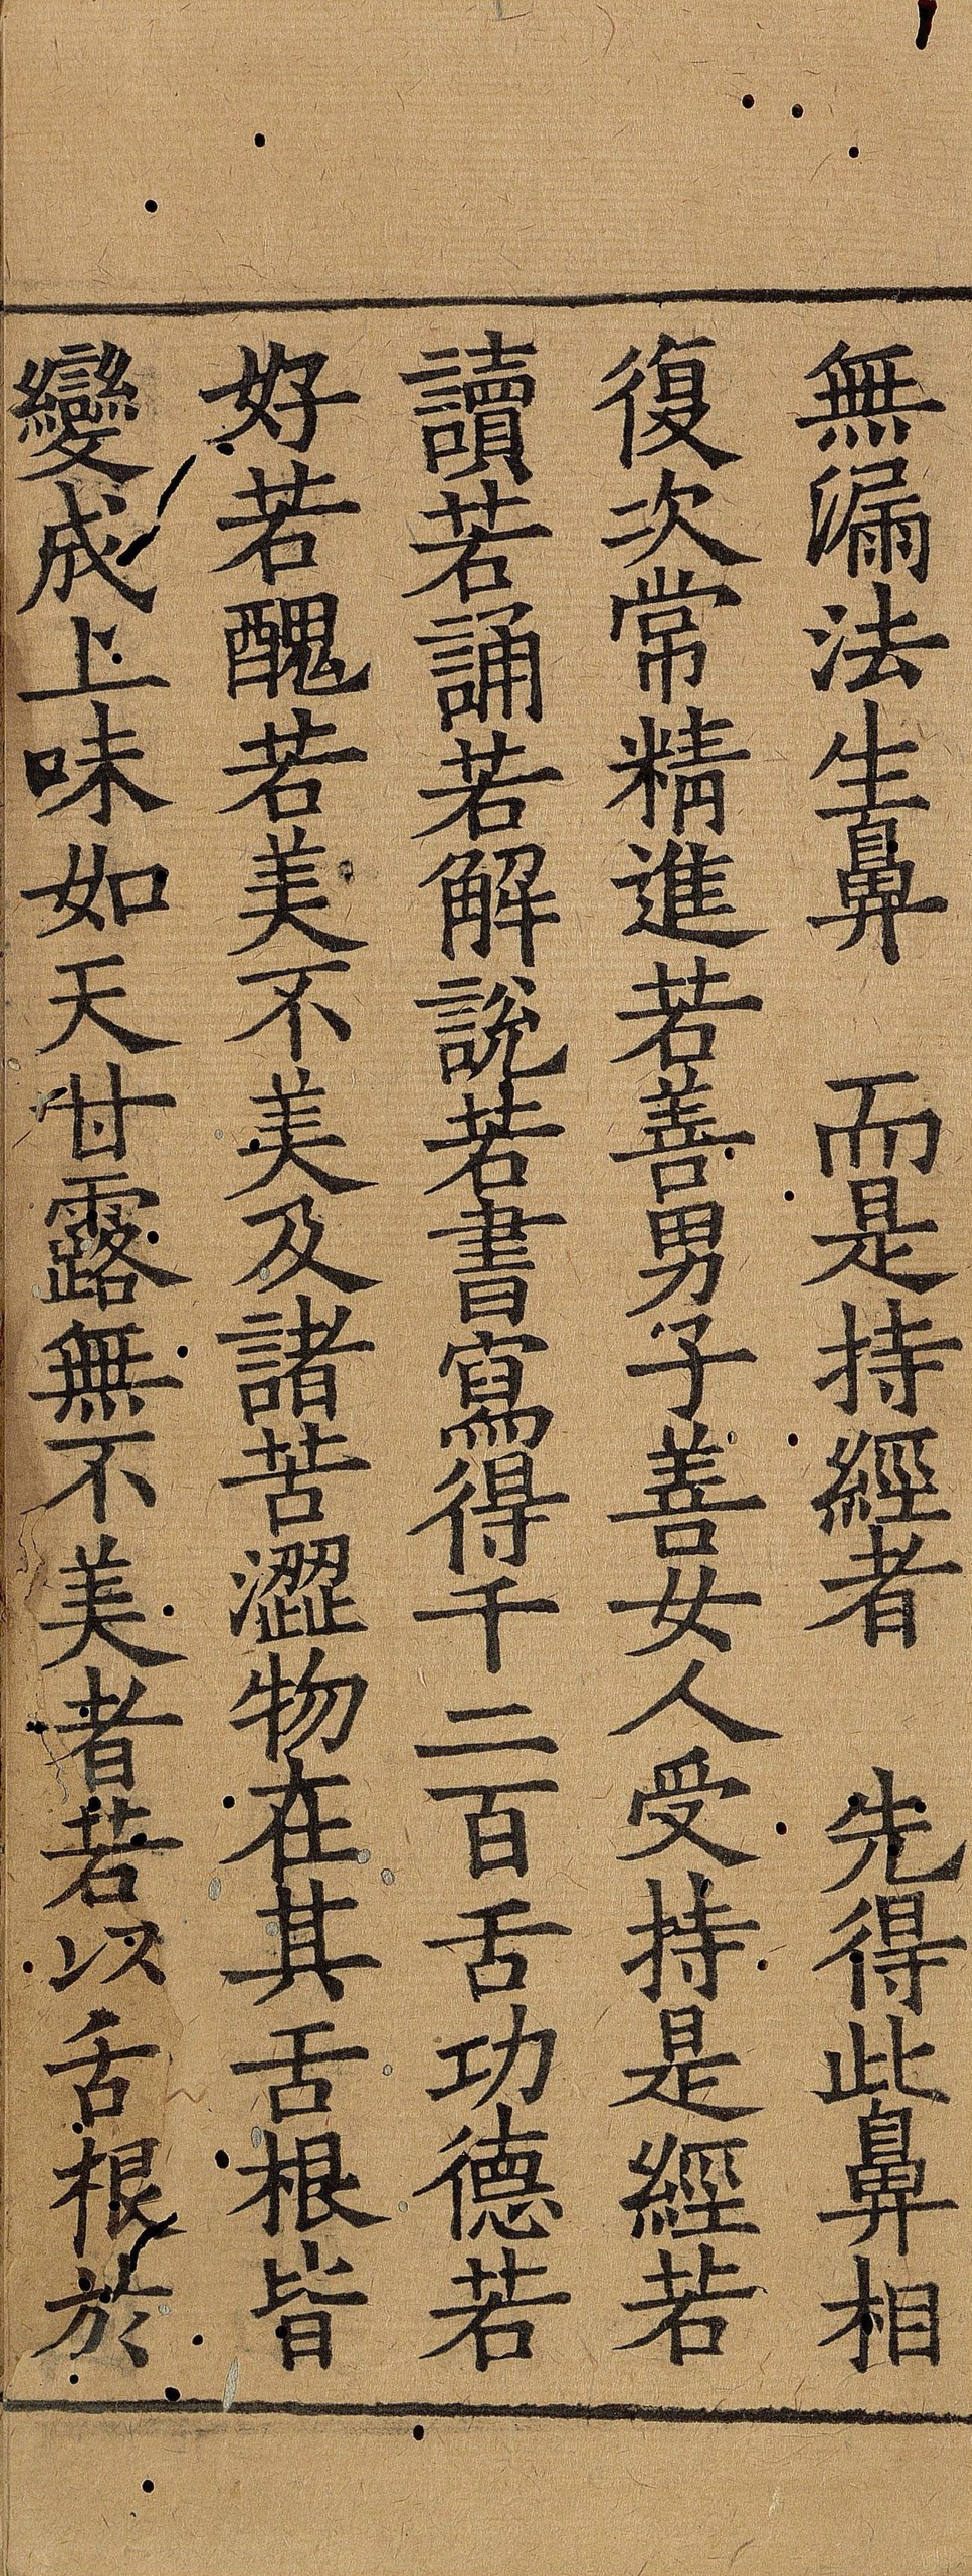 無漏法生鼻　而是持經者　先得此鼻相
復次常精進若善男子善女人受持是經若
讀若誦若解說若書寫得千二百舌功德若
好若醜若美不美及諸苦澀物在其舌根皆
變成上味如天甘露無不美者若以舌根於